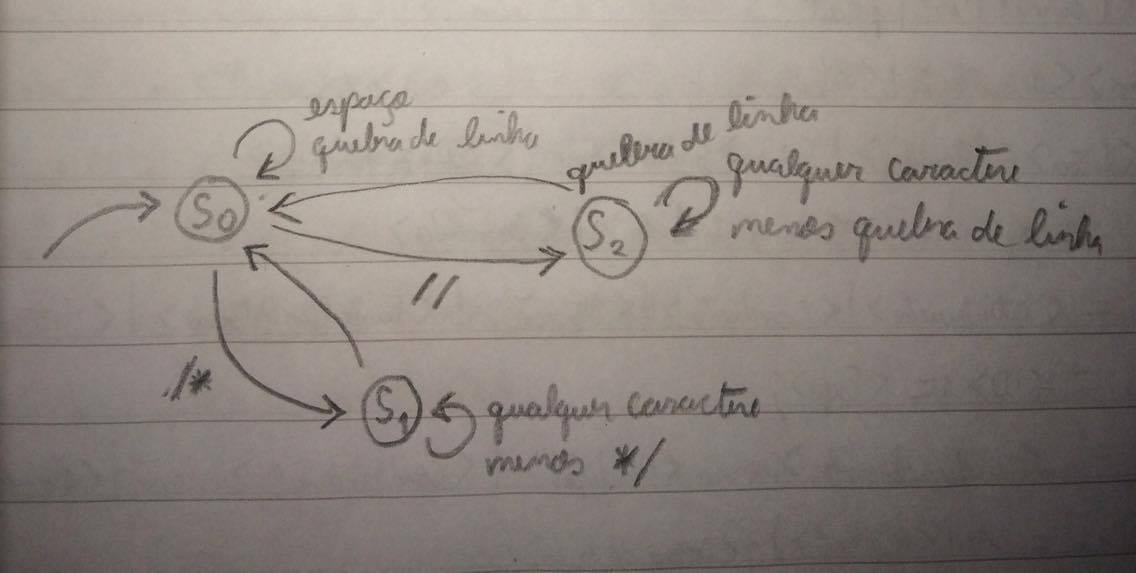 espaço
quebra de linha
quebra de linha
qualquer caractere
menos quebra de linha
S0
S2
//
/*
S1
qualquer caractere
menos */